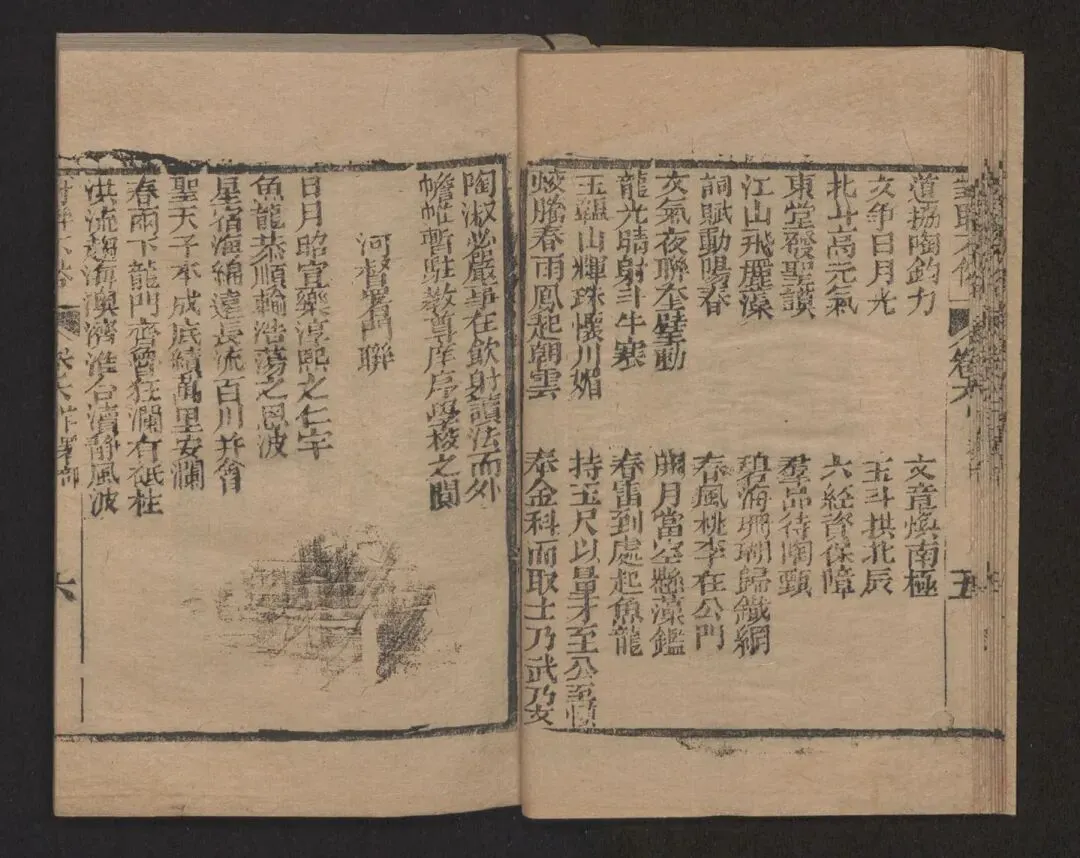 對聯 卷六 五
道協陶鈞力 文章煥南極
文爭日月光 玉斗拱北辰
北斗高元氣 六經資保障
東堂發聖 羣品待陶甄
江山飛麗藻 碧海珊瑚歸鐵網
詞賦動陽春 春風桃李在公門
文氣夜聯奎壁動 朗月當空懸藻鑑
龍光晴射斗牛寒 春雷到處起魚龍
玉韞山輝珠懷川媚 持玉尺以量才至公至慎
蛟騰春雨鳳起朝雲 奉金科而取士乃武乃文
陶淑必嚴事在飲射讀法而外
幨帷暫駐教尊庠序學校之閒
河督署門聯
日月昭宣樂淳熙之仁宇
魚龍恭順輸浩蕩之恩波
星宿海綿遠長流百川并會
聖天子本成底績萬里安瀾
春雨下龍門齊 狂瀾有砥柱
洪流趨海 濟淮合瀆靜風波
對聯 卷六 署部 六